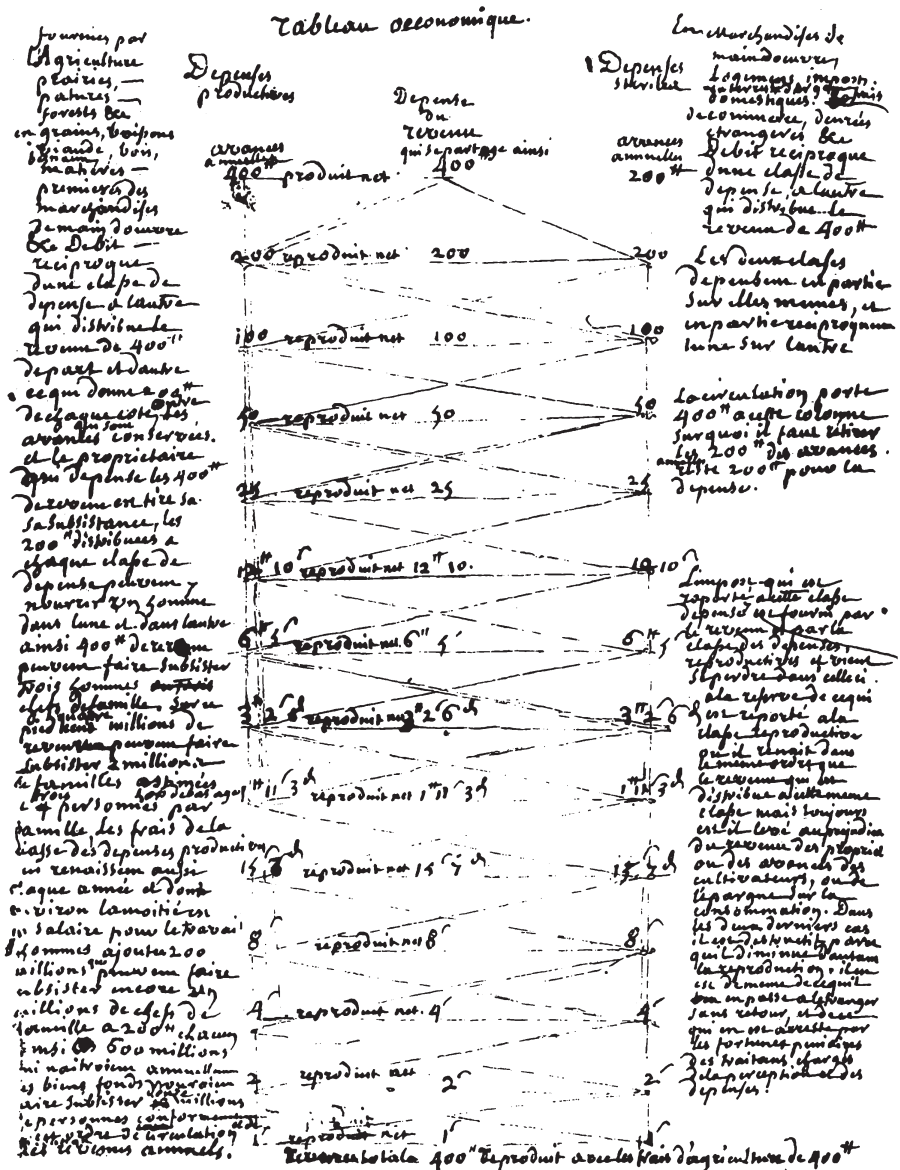 Tableau oeconomique.
fournies par
l'Agriculture
prairies, —
patures —
forests &c
en grains, boissons
viande, bois,
matieres —
premieres des
marchandises
de main doeuvre
&c Debit —
reciproque
dune classe de
depense a lautre
qui distribue le
revenu de 400tt
depart et dautre
ce qui donne 200tt
de chaque coté, outre les
avances qui sont conservées.
et le propriétaire
qui depense les 400tt
de revenu en tire sa
sa subsistance, les
200tt distribuées a
chaque classe de
depense peuvent y
nourrir un homme
dans lune et dans lautre
ainsi 400tt de revenu
peuvent faire subsister
trois hommes
chefs de famille, sur ce
pied millions de
revenu peuvent faire
subsister 2 millions
de familles estimées
a 4 personnes par
famille, Les frais de la
classe des depenses productives
qui renaissent aussi
chaque année et dont
environ la moitié est
en salaire pour le travail
d'hommes ajoute 200
millions qui peuvent faire
subsister encore un
millions de chefs de
famille a 200tt chacun
ainsi 600 millions
qui naitroient annuellement
des biens fonds pouroient
faire subsister millions
de personnes conformement
a cet ordre de circulation
des revenus annuels.
Depenses
productives
avances
annuelles
400tt produit net
Depense
du
revenu
qui se partage ainsi
400tt
Depenses
steriles
avances
annuelles
200tt
200 reproduit net 200 200
100 reproduit net 100 100
50 reproduit net 50 50
25 reproduit net 25 25
12tt 10s reproduit net 12tt 10. 10s
6tt 5s reproduit net. 6tt 5s 6tt 5s
3tt 2s 6d reproduit net 3tt 2s 6d 3tt 2s 6d
1tt 11s 3d reproduit net 1tt 11s 3d 1tt 11s 3d
15s reproduit net 15s 7d 15s 7d
8s reproduit net 8s 8s
4s reproduit net. 4s 4s
2 reproduit net 2s 2s
1s reproduit net 1s 1s
revenu total a 400tt reproduit avec les frais d'agriculture de 400tt
En marchandises de
main doeuvre,
Logement, imposts.
interest d'argent
domestiques.
de commerce, denrées
etrangeres &c
Debit reciproque
dune classe de
depense, a lautre
qui distribue le
revenu de 400tt
Les deux classes
depensent en partie
sur elles memes, et
en partie reciproquement
lune sur lautre
La circulation porte
400tt a cette colonne
sur quoi il faut retirer
les 200tt des avances
annuelles reste 200tt pour la
depense.
L'impost qui est
reporté a cette classe
depense est fourni par
le revenu et par la
classe des depenses
reproductives et vient
se perdre dans celle ci
a la reserve de ce qui
est reporté a la
classe reproductive
ou il renait dans
le meme ordre que
le revenu qui se
distribue a cette meme
classe mais toujours
est il levé au prejudice
du revenu des propriet
ou des avances des
cultivateurs, ou de
l'épargne sur la
consommation. Dans
les deux derniers cas
il est destructif parce
qu'il diminue d'autant
la reproduction. il en
est de meme de ce qu'il
en passe a l'etranger
sans retour, et de ce
qui en est arresté par
les fortunes pecuniaires
des traitans chargés
de la perception et des
depenses.